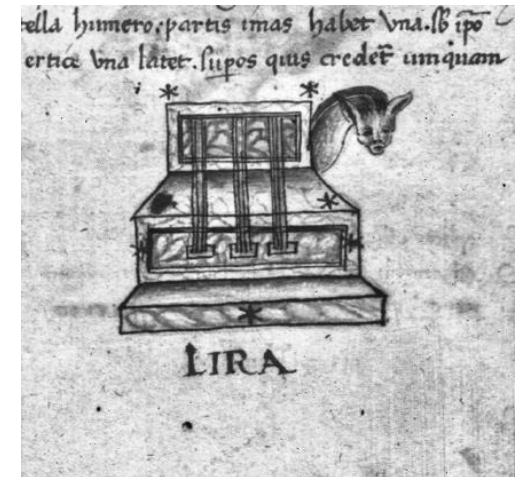 tella humero. partis imas habet vna. sb ip̄o
ertice vna latet. supos quis credet̄ umquam
LIRA